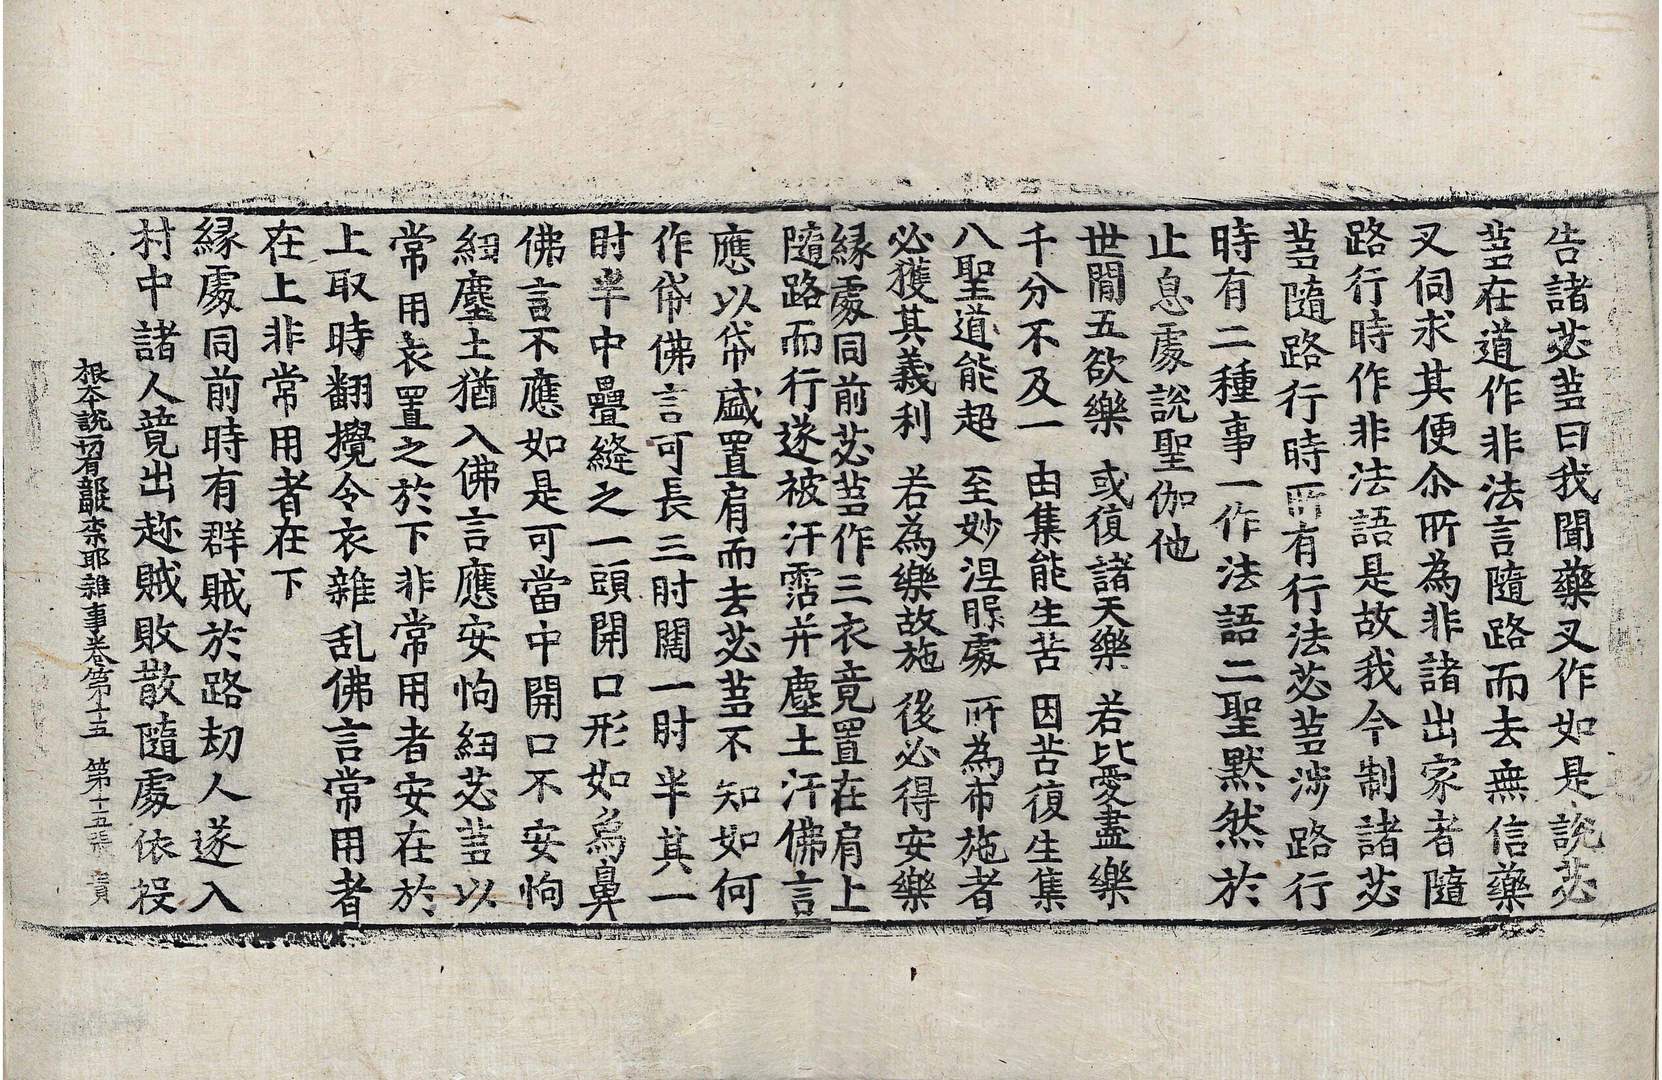 告諸苾芻曰我聞藥叉作如是說苾
芻在道作非法言隨路而去無信藥
叉伺求其便尒所為非諸出家者隨
路行時作非法語是故我今制諸苾
芻隨路行時所有行法苾芻涉路行
時有二種事一作法語二聖默然於
止息處說聖伽他
世間五欲樂 或復諸天樂 若比愛盡樂
千分不及一 由集能生苦 因苦復生集
八聖道能超 至妙涅槃處 所為布施者
必獲其義利 若為樂故施 後必得安樂
緣處同前苾芻作三衣竟置在肩上
隨路而行遂被汗霑并塵土汙佛言
應以帒盛置肩而去苾芻不知如何
作帒佛言可長三肘闊一肘半其一
肘半中疊縫之一頭開口形如象鼻
佛言不應如是可當中開口不安怐
細塵土猶入佛言應安怐紐苾芻以
常用衣置之於下非常用者安在於
上取時翻攪令衣雜乱佛言常用者
在上非常用者在下
緣處同前時有群賊於路劫人遂入
村中諸人競出趂賊敗散隨處依投
根本說一切有部毗奈耶雜事卷第十五 第十五張 責